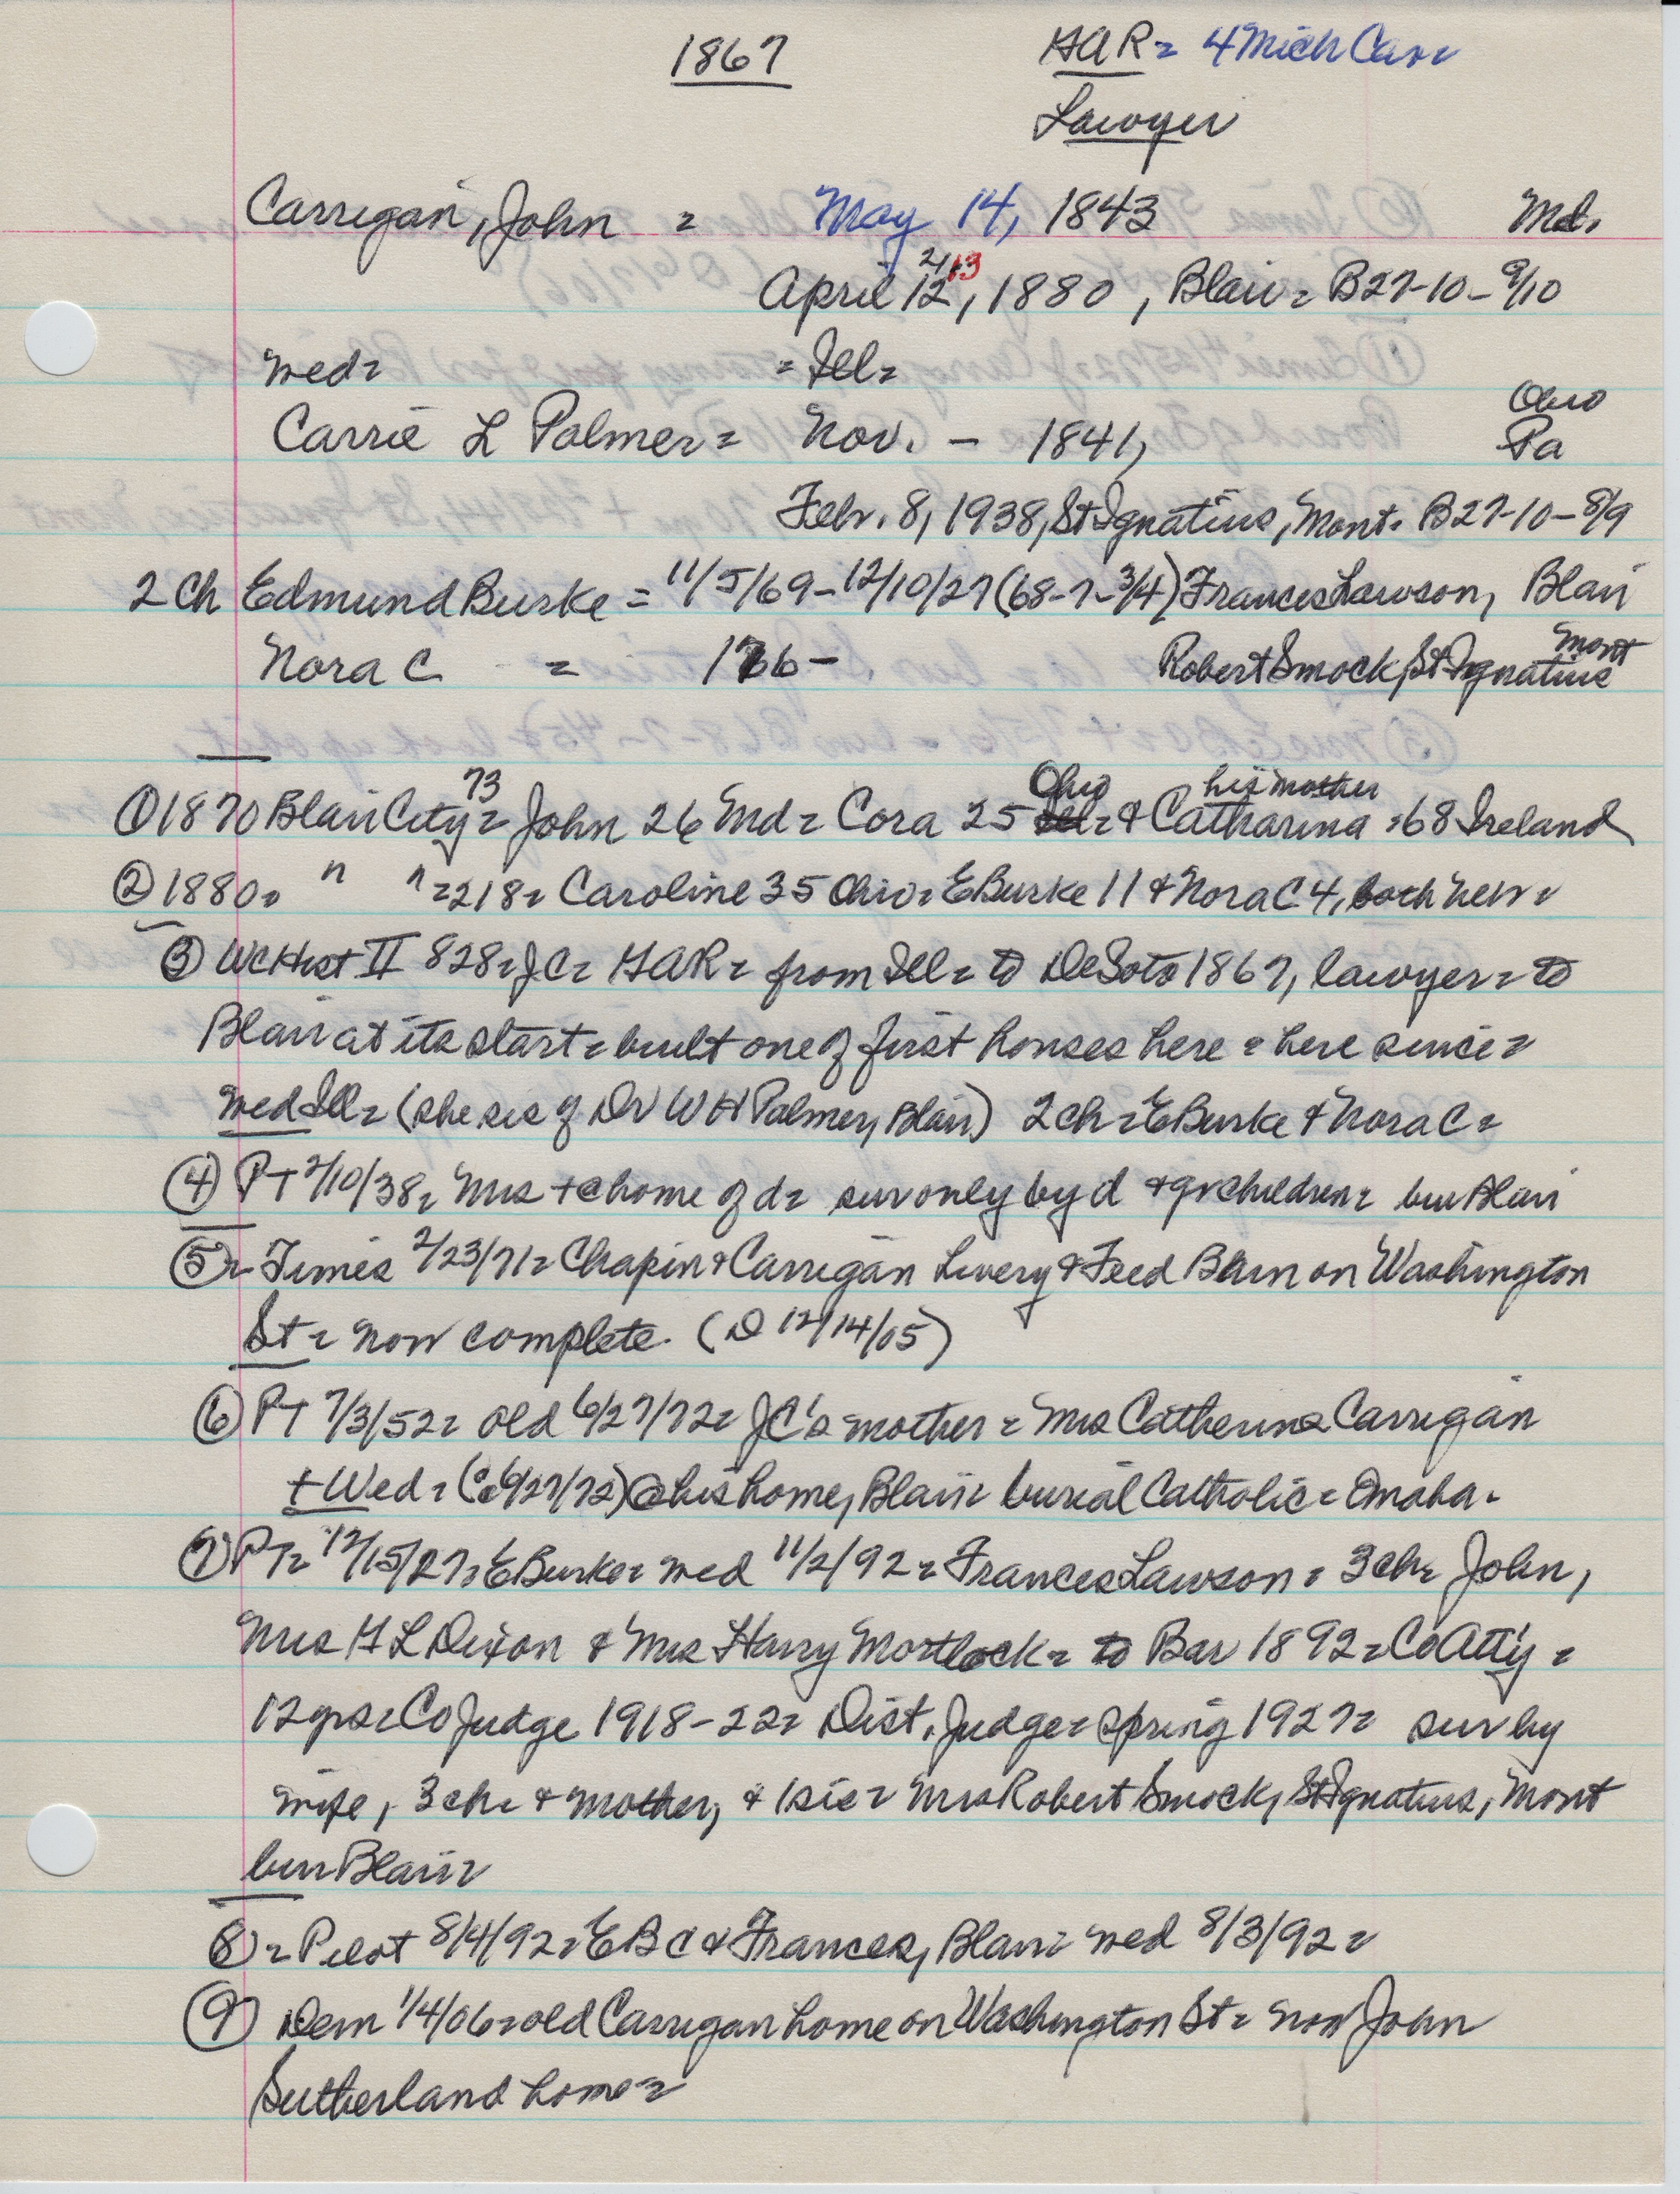 1867 GAR = 4 Mich Cav =
Lawyer
Carrigan, John = May 14, 1843 Md.
April 12, 1880, Blair = B27-10-9/10
med = = Ill =
Ohio
Carrie L Palmer = Nov. - 1841, Pa
Febr. 8, 1938, St Ignatius, Mont. B27-10-8/9
2 Ch Edmund Burke = 11/5/69 - 12/10/27 (68-7-3/4) Frances Lawson, Blair
Nora C = 176 - Robert Smock, St Ignatius Mont
73 Ohio his mother
① 1870 Blair City = John 26 Md = Cora 25 & Catharina = 68 Ireland
② 1880 = " " = 218 = Caroline 35 Ohio = E Burke 11 & Nora C 4, both Nebr =
③ WCHist II 828 = JC = GAR = from Ill = to DeSoto 1867, lawyer = to
Blair at its start = built one of first houses here = here since =
med Ill = (she sis of Dr W H Palmer, Blair) 2 ch = E Burke & Nora C =
④ PT 2/10/38 = Mrs + @ home of d = sur only by d & grchildren = bur Blair
⑤ = Times 2/23/71 = Chapin & Carrigan Livery & Feed Barn on Washington
St = now complete. (D 12/14/05)
⑥ PT 7/3/52 = old 6/27/72 = JC's mother = Mrs Catherine Carrigan
+ Wed = (c 6/27/72) @ his home, Blair = burial Catholic = Omaha.
⑦ PT = 12/15/27 = E Burke = med 11/2/92 = Frances Lawson = 3 ch = John,
Mrs G L Dixon & Mrs Harry Mortlock = to Bar 1892 = Co Att'y =
12 yrs = Co Judge 1918-22 = Dist. Judge = spring 1927 = sur by
wife, 3 ch = & mother, & 1 sis = Mrs Robert Smock, St Ignatius, Mont
bur Blair =
⑧ = Pilot 8/4/92 = EBC & Frances, Blair = med 8/3/92 =
⑨ Dem 1/4/06 = old Carrigan home on Washington St = now John
Sutherland home =